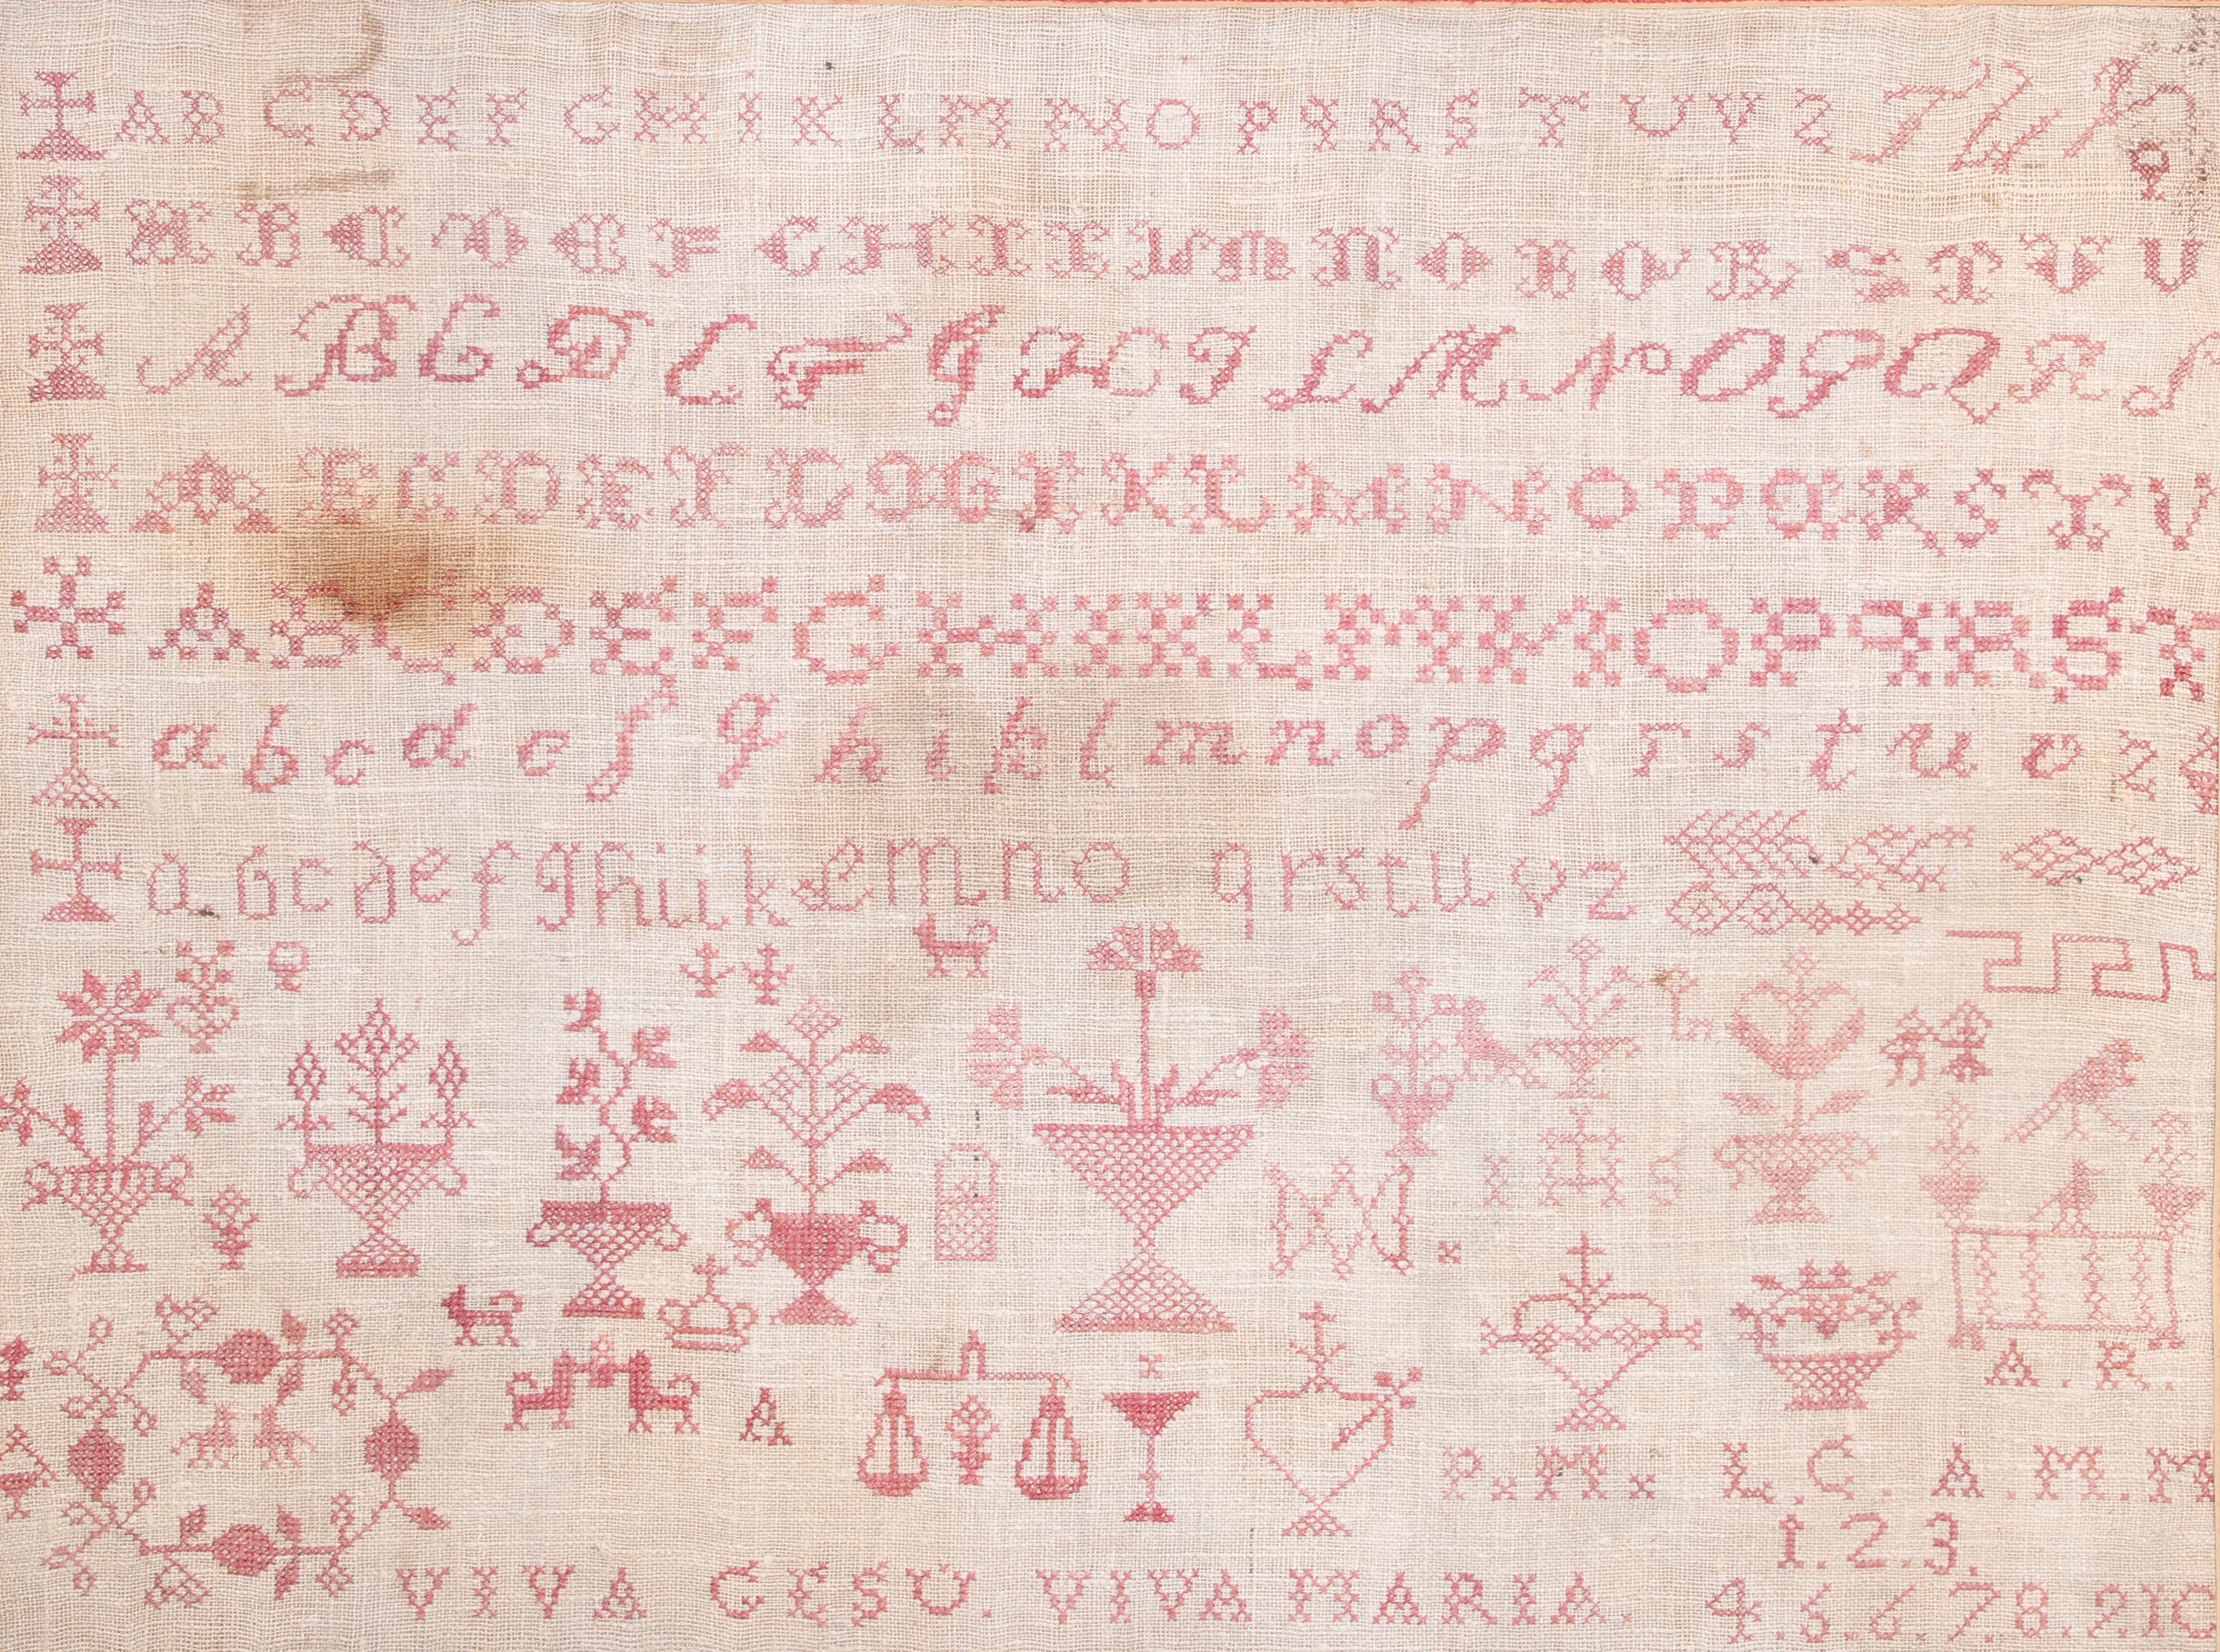 A B C D E F G H I K L M N O P Q R S T U V Z T U
A B C D E F G H I I L M N O B O R S T V U
A B C D E F G H I L M N O P Q R S
A B C D E F G I K L M N O P Q R S T V
A B C D E F G H I K L M N O P Q R S T
a b c d e f g h i k l m n o p q r s t u v z
a b c d e f g h i i k l m n o q r s t u v z
M.
I H S
A. R.
A
P x M x L. C. A. M. M
1. 2. 3.
VIVA GESU. VIVA MARIA. 4. 5. 6. 7. 8. 9. 10